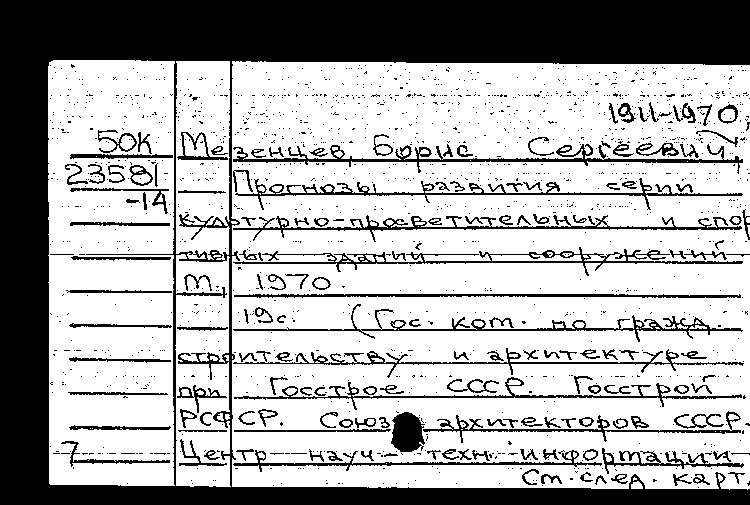 1911-1970,
50К Мезенцев, Борис Сергеевич,
23581 Прогнозы развития серии
-14 культурно-просветительных и спор
тивных зданий и сооружений.
М., 1970.
19с. (Гос. ком. по гражд.
строительству и архитектуре
при Госстрое СССР. Госстрой
РСФСР. Союз архитекторов СССР.
7 Центр науч- техн. информации
См. след. карт.